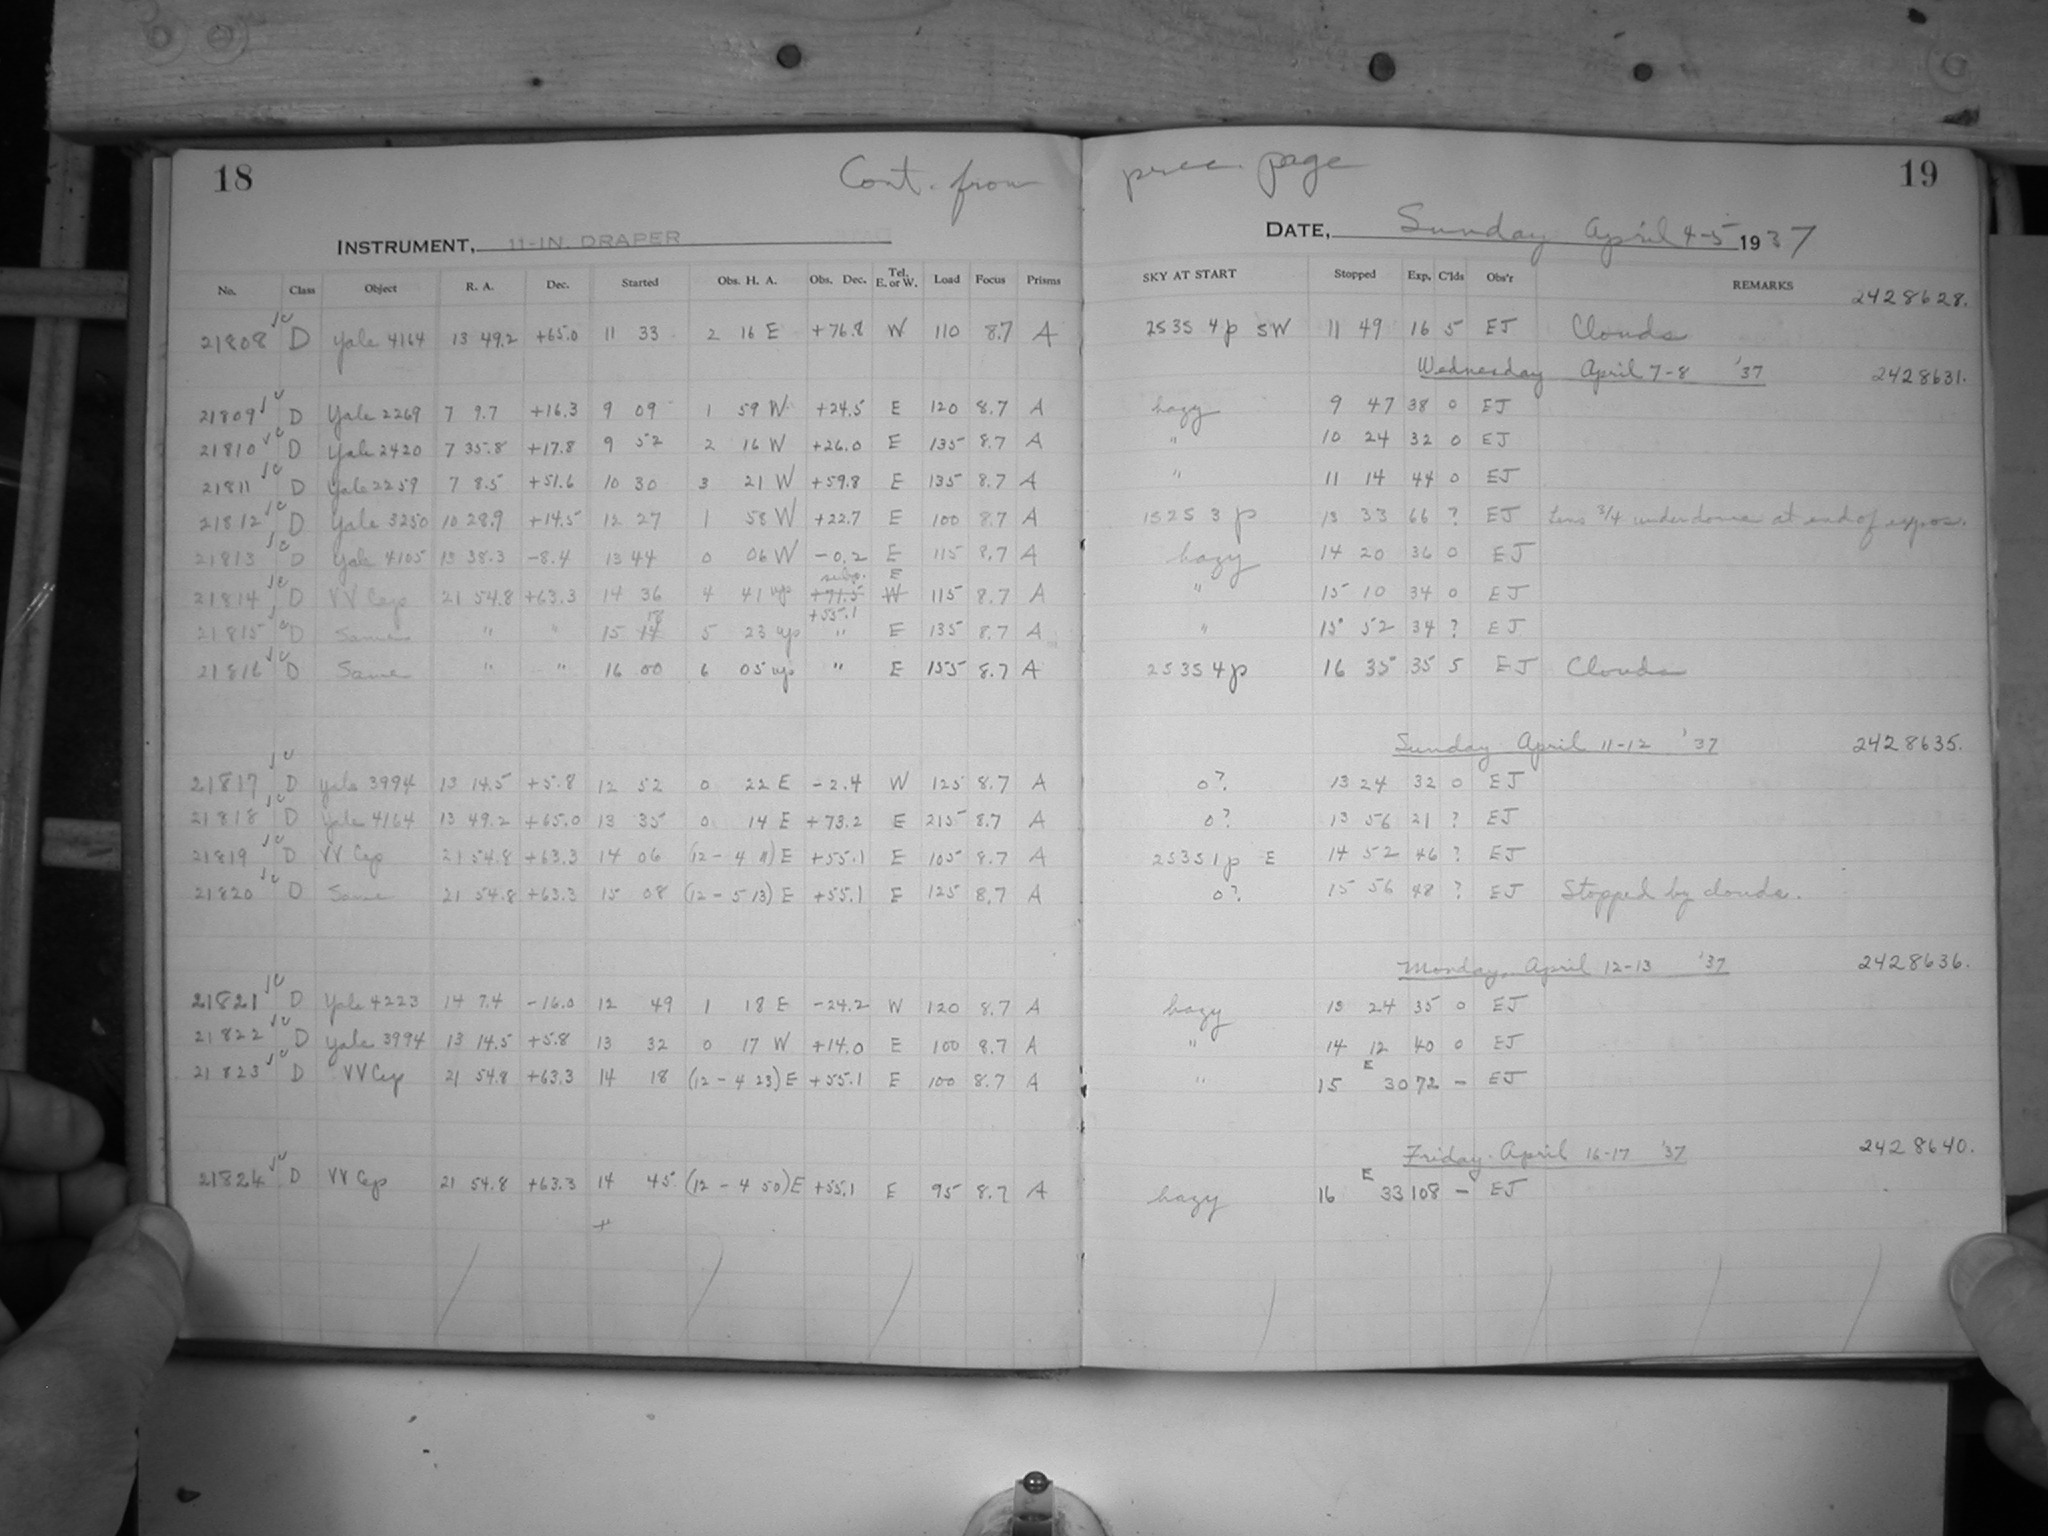 18
Cont. from prec. page
19
INSTRUMENT, 11-IN. DRAPER
DATE, Sunday April 4-5 1937
No. Class Object R. A. Dec. Started Obs. H. A. Obs. Dec. Tel. E. or W. Load Focus Prisms SKY AT START Stopped Exp. C'lds Obs'r REMARKS
2428628.
21808 D Yale 4164 13 49.2 +65.0 11 33 2 16 E +76.8 W 110 8.7 A 2S3S 4p SW 11 49 16 5 EJ Clouds
Wednesday April 7-8 '37 2428631.
21809 D Yale 2269 7 9.7 +16.3 9 09 1 59 W +24.5 E 120 8.7 A hazy 9 47 38 0 EJ
21810 D Yale 2420 7 35.8 +17.8 9 52 2 16 W +26.0 E 135 8.7 A " 10 24 32 0 EJ
21811 D Yale 2259 7 8.5 +51.6 10 30 3 21 W +59.8 E 135 8.7 A " 11 14 44 0 EJ
21812 D Yale 3250 10 28.9 +14.5 12 27 1 58 W +22.7 E 100 8.7 A 1S2S 3p 13 33 66 ? EJ Lens 3/4 under dome at end of expos.
21813 D Yale 4105 13 38.3 -8.4 13 44 0 06 W -0.2 E 115 8.7 A hazy 14 20 36 0 EJ
subp. E
21814 D VV Cep 21 54.8 +63.3 14 36 4 41 up +71.5 W 115 8.7 A " 15 10 34 0 EJ
18 +55.1
21815 D Same " " 15 14 5 23 up " E 135 8.7 A " 15 52 34 ? EJ
21816 D Same " " 16 00 6 05 up " E 155 8.7 A 2S3S4p 16 35 35 5 EJ Clouds
Sunday April 11-12 '37 2428635.
21817 D Yale 3994 13 14.5 +5.8 12 52 0 22 E -2.4 W 125 8.7 A 0? 13 24 32 0 EJ
21818 D Yale 4164 13 49.2 +65.0 13 35 0 14 E +73.2 E 215 8.7 A 0? 13 56 21 ? EJ
21819 D VV Cep 21 54.8 +63.3 14 06 (12-4 11) E +55.1 E 105 8.7 A 2S3S1p E 14 52 46 ? EJ
21820 D Same 21 54.8 +63.3 15 08 (12-5 13) E +55.1 E 125 8.7 A 0? 15 56 48 ? EJ Stopped by clouds.
Monday, April 12-13 '37 2428636.
21821 D Yale 4223 14 7.4 -16.0 12 49 1 18 E -24.2 W 120 8.7 A hazy 13 24 35 0 EJ
21822 D Yale 3994 13 14.5 +5.8 13 32 0 17 W +14.0 E 100 8.7 A " 14 12 40 0 EJ
21823 D VV Cep 21 54.8 +63.3 14 18 (12-4 23) E +55.1 E 100 8.7 A " 15 E 30 72 - EJ
Friday April 16-17 '37 2428640.
21824 D VV Cep 21 54.8 +63.3 14 45 (12-4 50) E +55.1 E 95 8.7 A hazy 16 E 33 108 - EJ